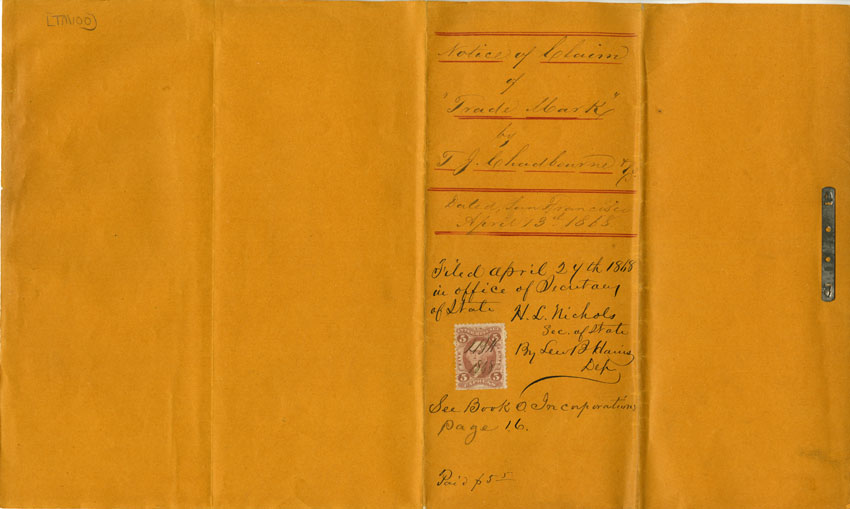 [TM100]
Notice of Claim
of
"Trade Mark"
by
T. J. Chadbourne & Co.
Dated, San Francisco
April 13th 1868.
Filed April 24th 1868
in office of Secretary
of State
H. L. Nichols
Sec. of State
By Lew B Harris
Dep
5 5
1868
5 5
See Book O Incorporations
page 16.
Paid $5